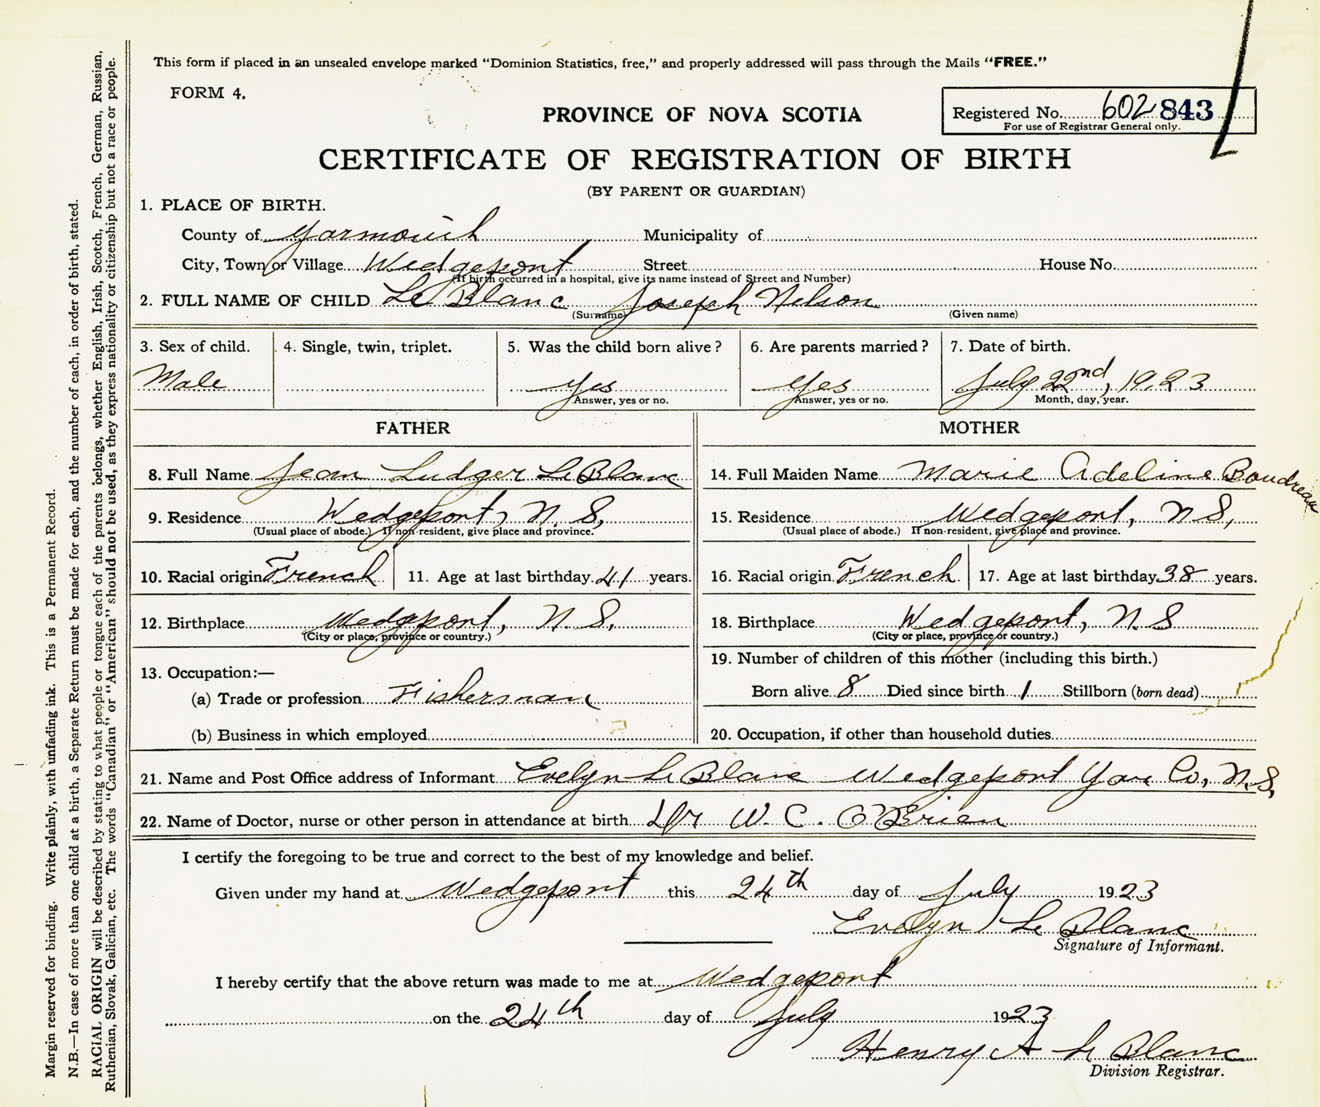 This form if placed in an unsealed envelope marked "Dominion Statistics, free," and properly addressed will pass through the Mails "FREE."
FORM 4.
PROVINCE OF NOVA SCOTIA
Registered No. 602 843
For use of Registrar General only.
CERTIFICATE OF REGISTRATION OF BIRTH
(BY PARENT OR GUARDIAN)
1. PLACE OF BIRTH.
County of Yarmouth Municipality of
City, Town or Village Wedgeport Street House No.
(If birth occurred in a hospital, give its name instead of Street and Number)
2. FULL NAME OF CHILD Le Blanc Joseph Nelson
(Surname) (Given name)
3. Sex of child. 4. Single, twin, triplet. 5. Was the child born alive? 6. Are parents married? 7. Date of birth.
Male Yes Yes July 22nd, 1923
Answer, yes or no. Answer, yes or no. Month, day, year.
FATHER MOTHER
8. Full Name Jean Ludger Le Blanc 14. Full Maiden Name Marie Adeline Boudreau
9. Residence Wedgeport, N.S. 15. Residence Wedgeport, N S,
(Usual place of abode.) If non-resident, give place and province. (Usual place of abode.) If non-resident, give place and province.
10. Racial origin French 11. Age at last birthday 41 years. 16. Racial origin French 17. Age at last birthday 38 years.
12. Birthplace Wedgeport, N.S. 18. Birthplace Wedgeport, N.S
(City or place, province or country.) (City or place, province or country.)
19. Number of children of this mother (including this birth.)
13. Occupation:—
(a) Trade or profession Fisherman Born alive 8 Died since birth 1 Stillborn (born dead)
(b) Business in which employed 20. Occupation, if other than household duties
21. Name and Post Office address of Informant Evelyn Le Blanc Wedgeport Yar Co, N.S,
22. Name of Doctor, nurse or other person in attendance at birth Dr W. C. O'Brien
I certify the foregoing to be true and correct to the best of my knowledge and belief.
Given under my hand at Wedgeport this 24th day of July 1923
Evelyn Le Blanc
Signature of Informant.
I hereby certify that the above return was made to me at Wedgeport
on the 24th day of July 1923
Henry A Le Blanc
Division Registrar.
Margin reserved for binding. Write plainly, with unfading ink. This is a Permanent Record.
N.B.—In case of more than one child at a birth, a Separate Return must be made for each, and the number of each, in order of birth, stated.
RACIAL ORIGIN will be described by stating to what people or tongue each of the parents belongs, whether English, Irish, Scotch, French, German, Russian,
Ruthenian, Slovak, Galician, etc. The words "Canadian" or "American" should not be used, as they express nationality or citizenship but not a race or people.